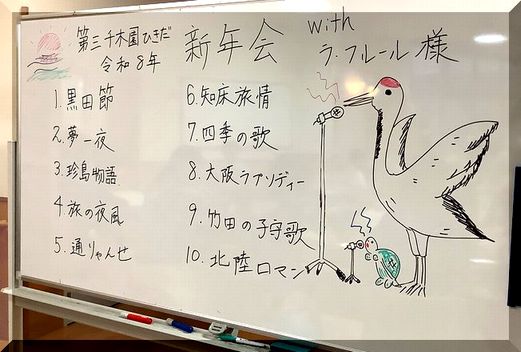 第三千木園ひきだ
令和8年
新年会
with
ラ・フルール様
1.黒田節
2.夢一夜
3.珍島物語
4.旅の夜風
5.通りゃんせ
6.知床旅情
7.四季の歌
8.大阪ラプソディー
9.竹田の子守歌
10.北陸ロマン